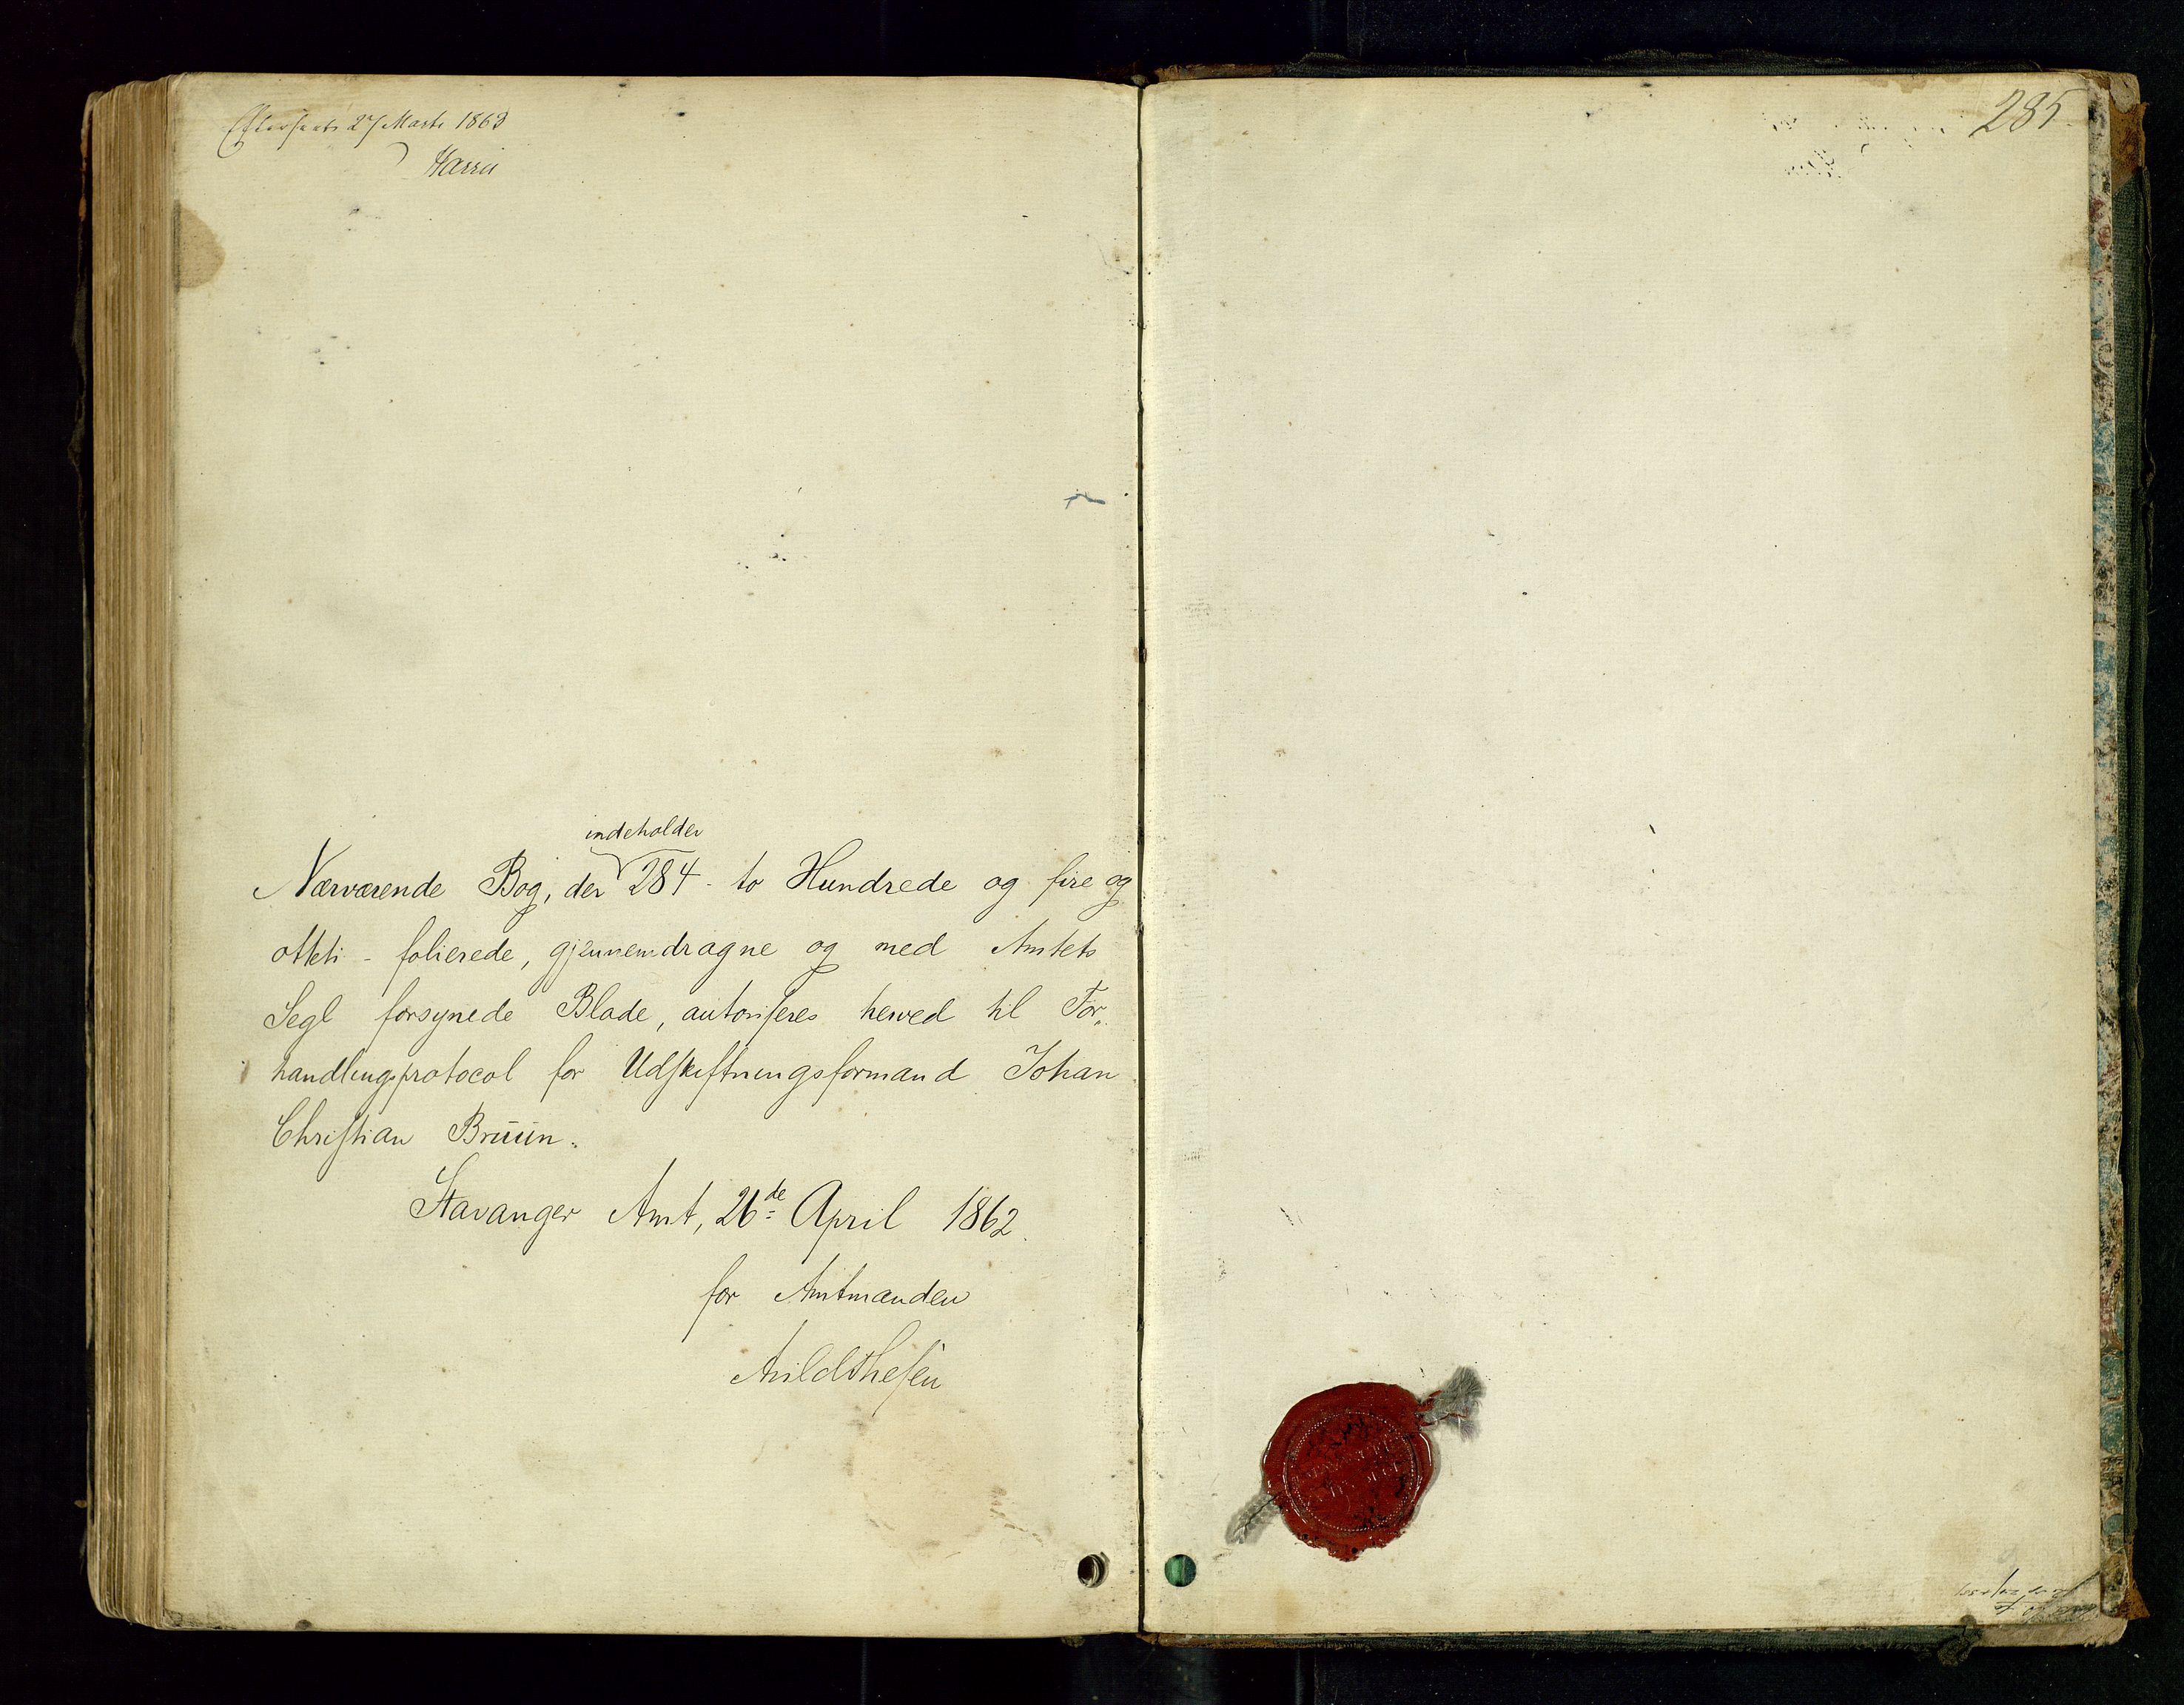 Efterseet 27 Marts 1863
Harris
285
indeholder
Nærværende Bog, der 284 - to Hundrede og fire og
otteti - folierede, gjennemdragne og med Amtets
Segl forsynede Blade, autoriseres herved til For„
handlingsprotocol for Udskiftningsformand Johan
Christian Bruun.
Stavanger Amt, 26de April 1862.
for Amtmanden